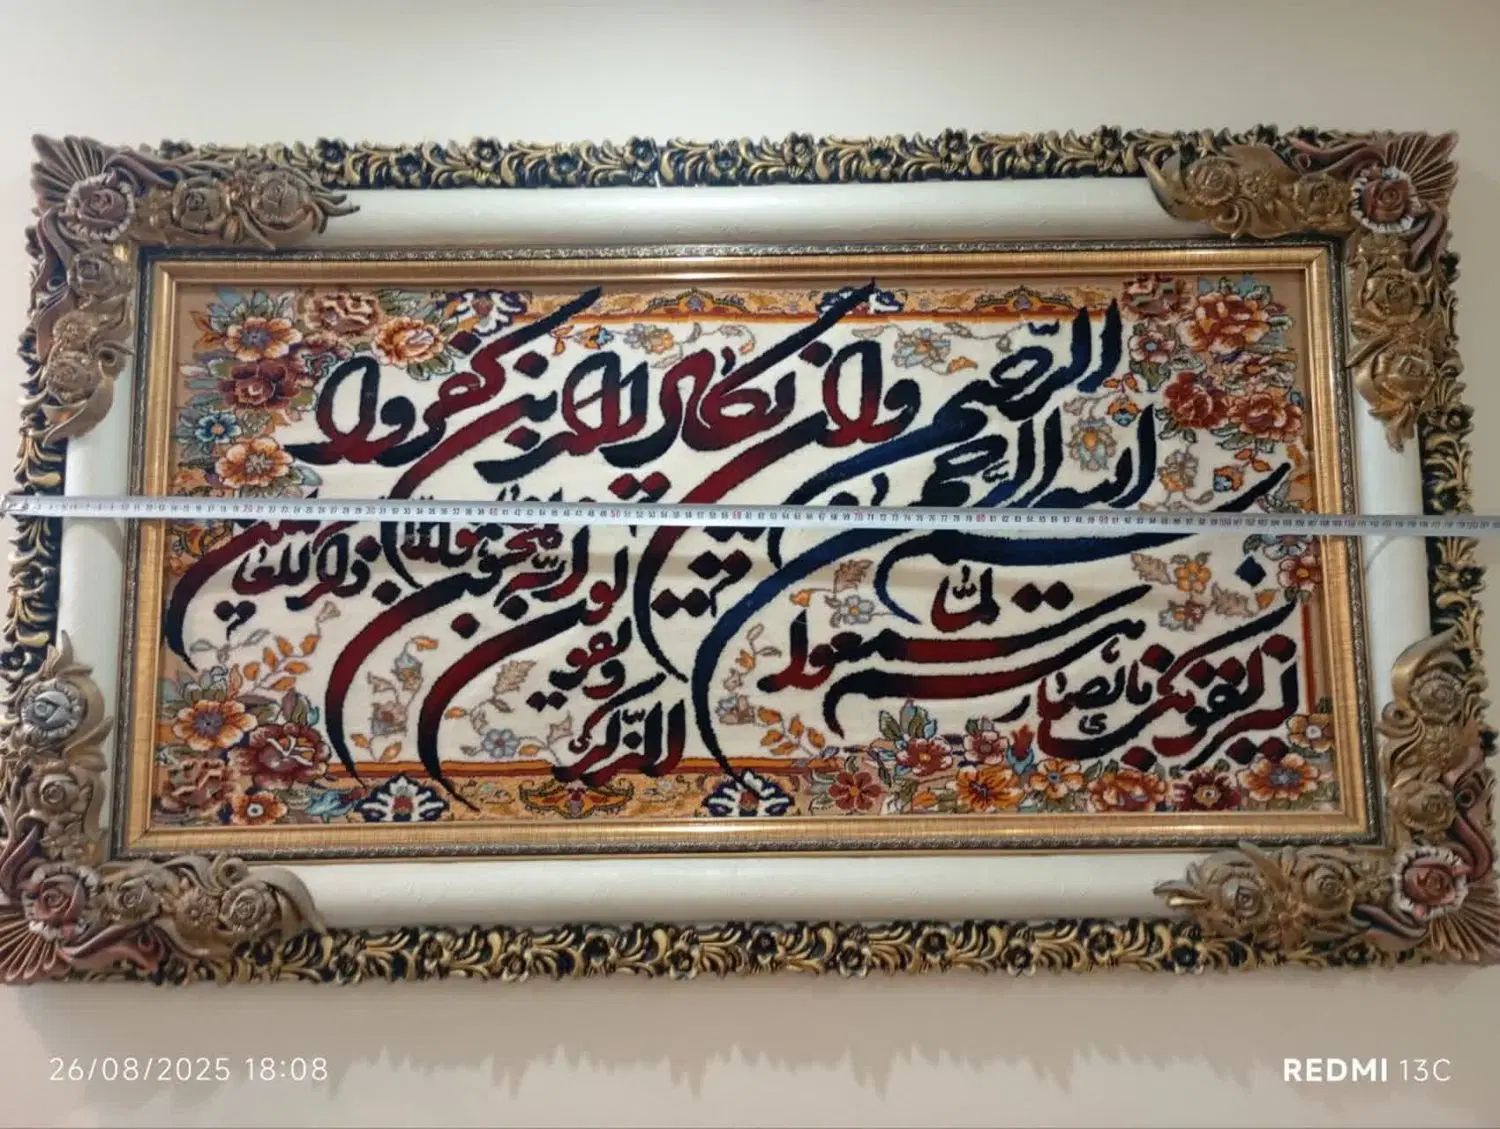 بسم الله الرحمن الرحیم
وان یکاد الذین کفروا
لیزلقونک بابصارهم
لما سمعوا
الذکر
ویقولون
انه لمجنون
وما هو الا
ذکر للعالمین
26/08/2025 18:08
REDMI 13C